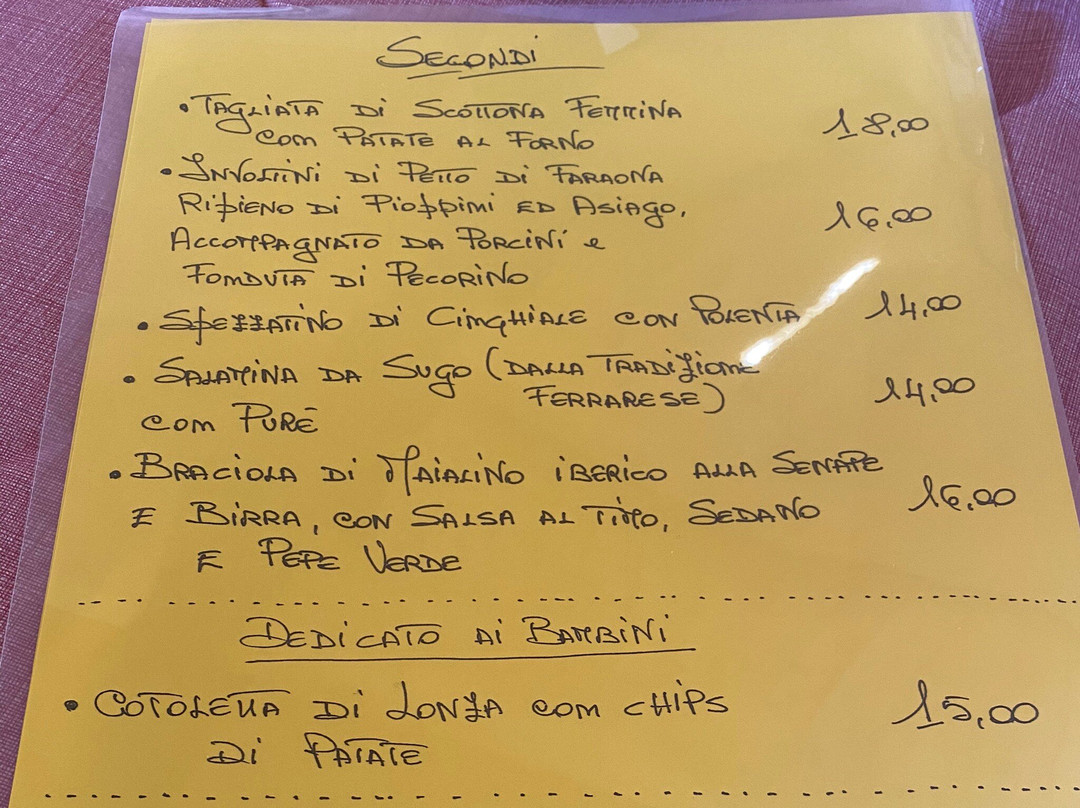 SECONDI
• TAGLIATA Di SCOTTONA FEMMINA 18,00
CON PATATE AL FORNO
• INVOLTINI Di PETTO Di FARAONA
RIPIENO Di PIOPPINI ED ASIAGO, 16,00
ACCOMPAGNATO DA PORCINI e
FONDUTA Di PECORINO
• SPEZZATINO Di CINGHIALE CON POLENTA 14,00
• SALAMINA DA SUGO (DALLA TRADIZIONE
FERRARESE) 14,00
CON PURÈ
• BRACIOLA Di MAIALINO IBERICO ALLA SENAPE
E BIRRA, CON SALSA AL TIMO, SEDANO 16,00
E PEPE VERDE
DEDICATO AI BAMBINI
• COTOLETTA Di LONZA CON CHIPS 15,00
Di PATATE